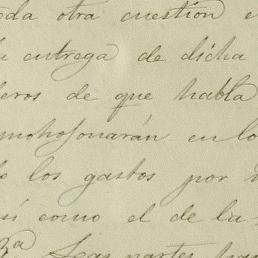 da otra cuestión e
entrega de dicha
eros de que habla
mohosonarán en lo
los gastos por
sí como el de lu-
3ª Las partes